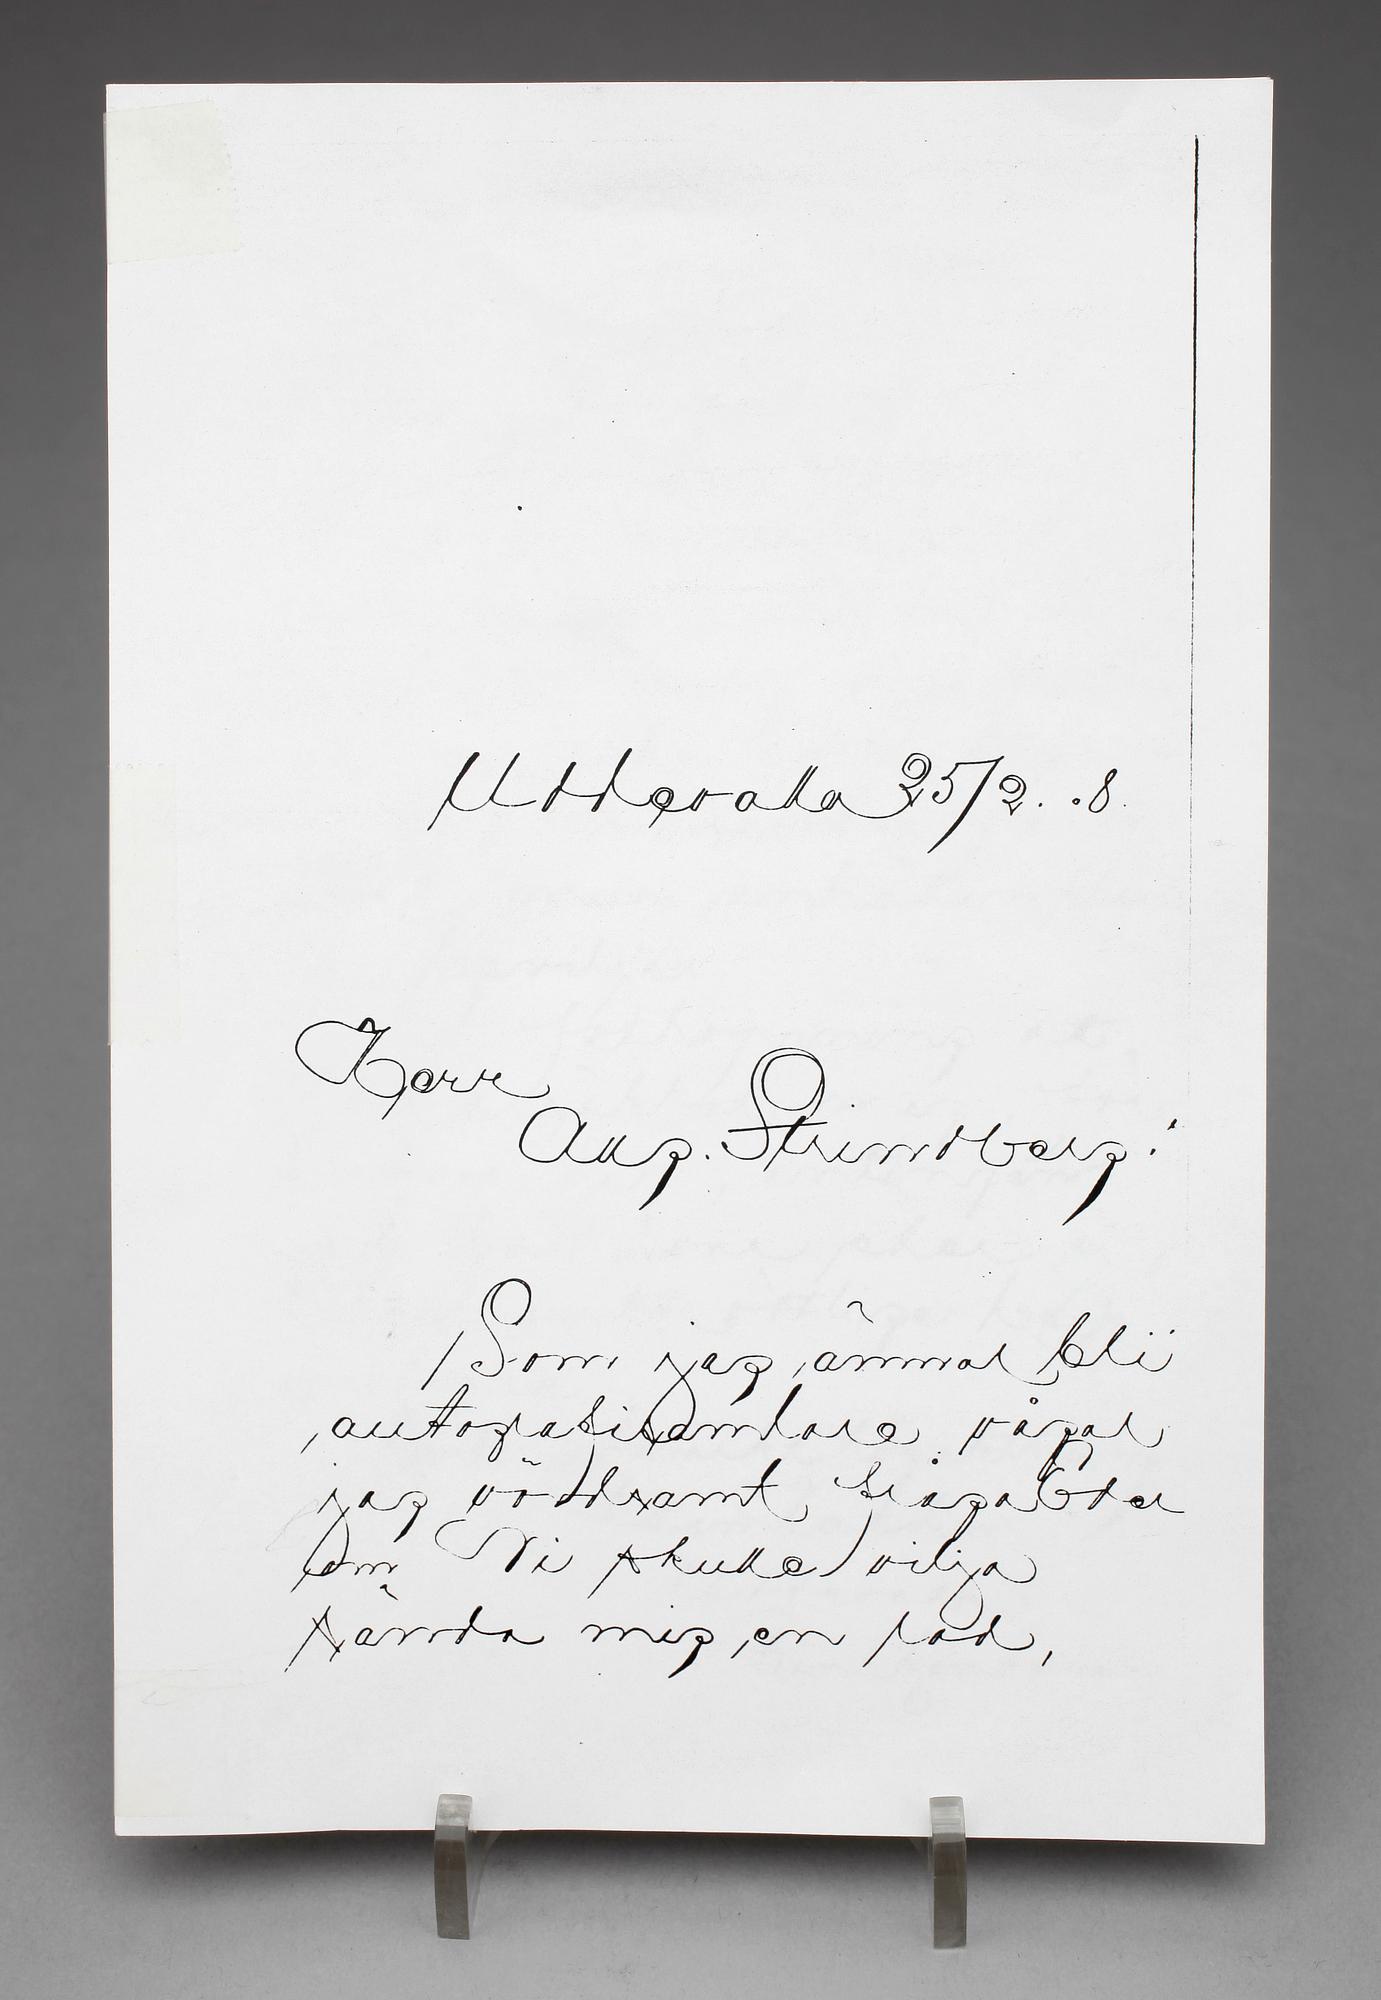 Uddevalla 25/2. .8.
Herr
Aug. Strindberg!
Som jag ämnat bli
autografsamlare vågar
jag vördsamt fråga Eder
om Ni skulle vilja
sända mig en rad,